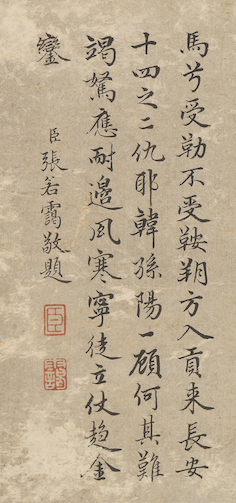 馬兮受勒不受鞍朔方入貢来長安
十四之二仇耶韓孫陽一顧何其難
竭駑應耐邊风寒寧徒立仗趋金
鑾
臣張若靄敬題
臣
靄